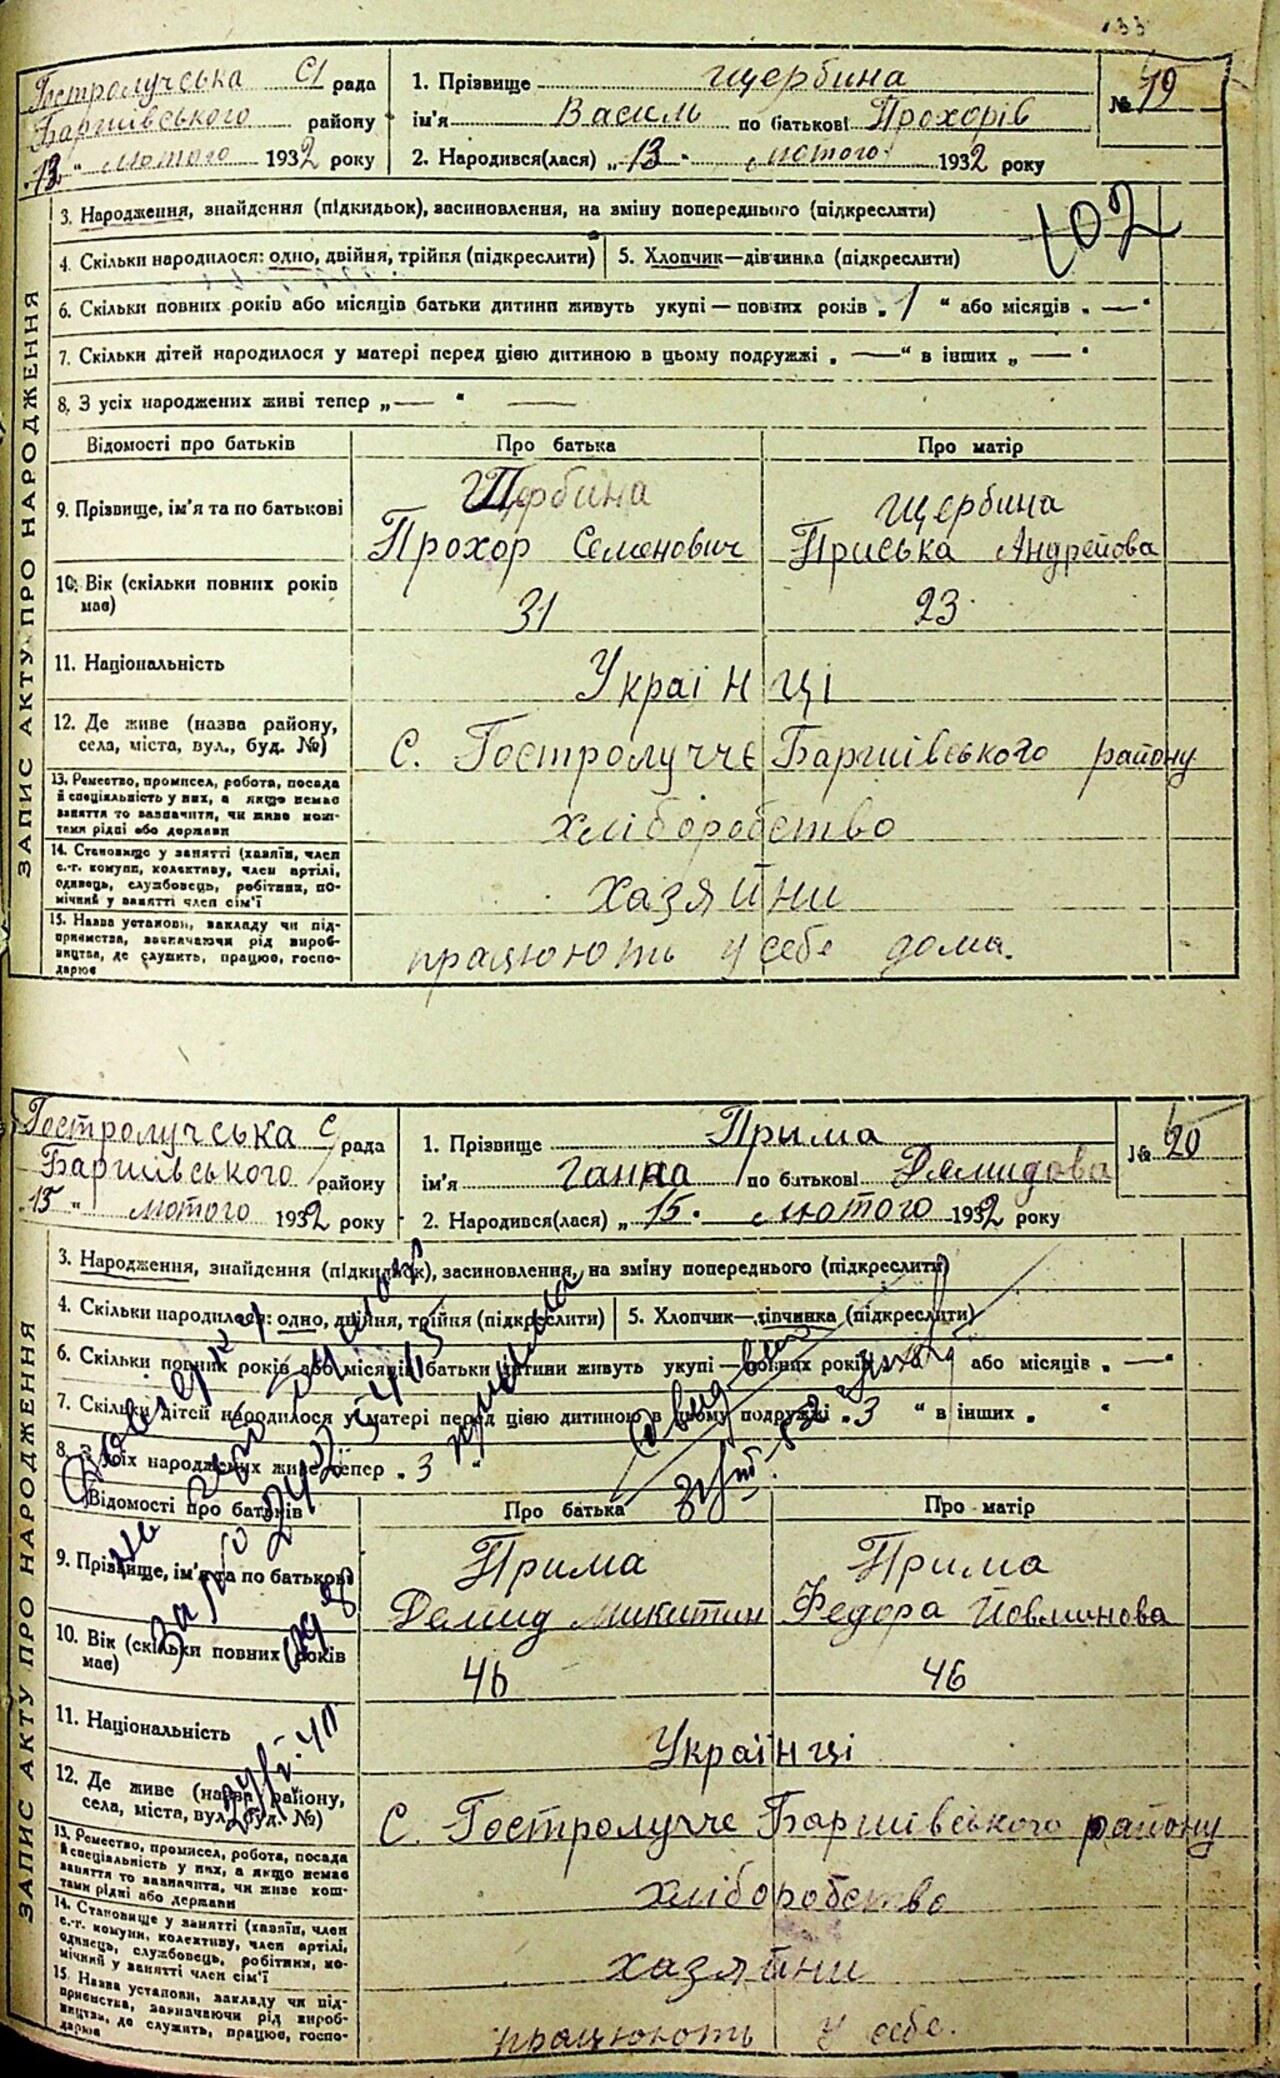 133
Гостролучська С/ рада
Баришівського району
„13" лютого 1932 року
1. Прізвище Щербина
ім'я Василь по батькові Прохорів
2. Народився(лася) „13" лютого 1932 року
№ 19
ЗАПИС АКТУ ПРО НАРОДЖЕННЯ
3. Народження, знайдення (підкидьок), засиновлення, на зміну попереднього (підкреслити)
102
4. Скільки народилося: одно, двійня, трійня (підкреслити)
5. Хлопчик—дівчинка (підкреслити)
6. Скільки повних років або місяців батьки дитини живуть укупі — повних років „1" або місяців „—"
7. Скільки дітей народилося у матері перед цією дитиною в цьому подружжі „—" в інших „—"
8. З усіх народжених живі тепер „—" —
Відомості про батьків Про батька Про матір
9. Прізвище, ім'я та по батькові
Щербина
Прохор Семенович
Щербина
Приська Андрейова
10. Вік (скільки повних років має) 31 23
11. Національність Українці
12. Де живе (назва району, села, міста, вул., буд. №)
С. Гостролуччє Баришівського району
13. Ремество, промисел, робота, посада
й спеціяльність у них, а якщо немає
заняття то зазначити, чи живе кош-
тами рідні або держави
хліборобство
14. Становище у занятті (хазяїн, член
с.-г. комуни, колективу, член артілі,
одинець, службовець, робітник, по-
мічний у занятті член сім'ї
хазяйни
15. Назва установи, закладу чи під-
приємства, зазначаючи рід вироб-
ництва, де служить, працює, госпо-
дарює
працюють у себе дома.
Гостролучська С/ рада
Баришівського району
„15" лютого 1932 року
1. Прізвище Прима
ім'я Ганна по батькові Демидова
2. Народився(лася) „15" лютого 1932 року
№ 20
ЗАПИС АКТУ ПРО НАРОДЖЕННЯ
3. Народження, знайдення (підкидьок), засиновлення, на зміну попереднього (підкреслити)
4. Скільки народилося: одно, двійня, трійня (підкреслити)
5. Хлопчик—дівчинка (підкреслити)
6. Скільки повних років або місяців батьки дитини живуть укупі — повних років або місяців „—"
7. Скільки дітей народилося у матері перед цією дитиною в цьому подружжі „3" в інших „ "
8. З усіх народжених живі тепер „3"
Відомості про батьків Про батька Про матір
9. Прізвище, ім'я та по батькові
Прима
Демид Микитин
Прима
Федора
10. Вік (скільки повних років має) 46 46
11. Національність Українці
12. Де живе (назва району, села, міста, вул., буд. №)
С. Гостролучче Баришівського району
13. Ремество, промисел, робота, посада
й спеціяльність у них, а якщо немає
заняття то зазначити, чи живе кош-
тами рідні або держави
хліборобство
14. Становище у занятті (хазяїн, член
с.-г. комуни, колективу, член артілі,
одинець, службовець, робітник, по-
мічний у занятті член сім'ї
хазяйни
15. Назва установи, закладу чи під-
приємства, зазначаючи рід вироб-
ництва, де служить, працює, госпо-
дарює
працюють у себе.